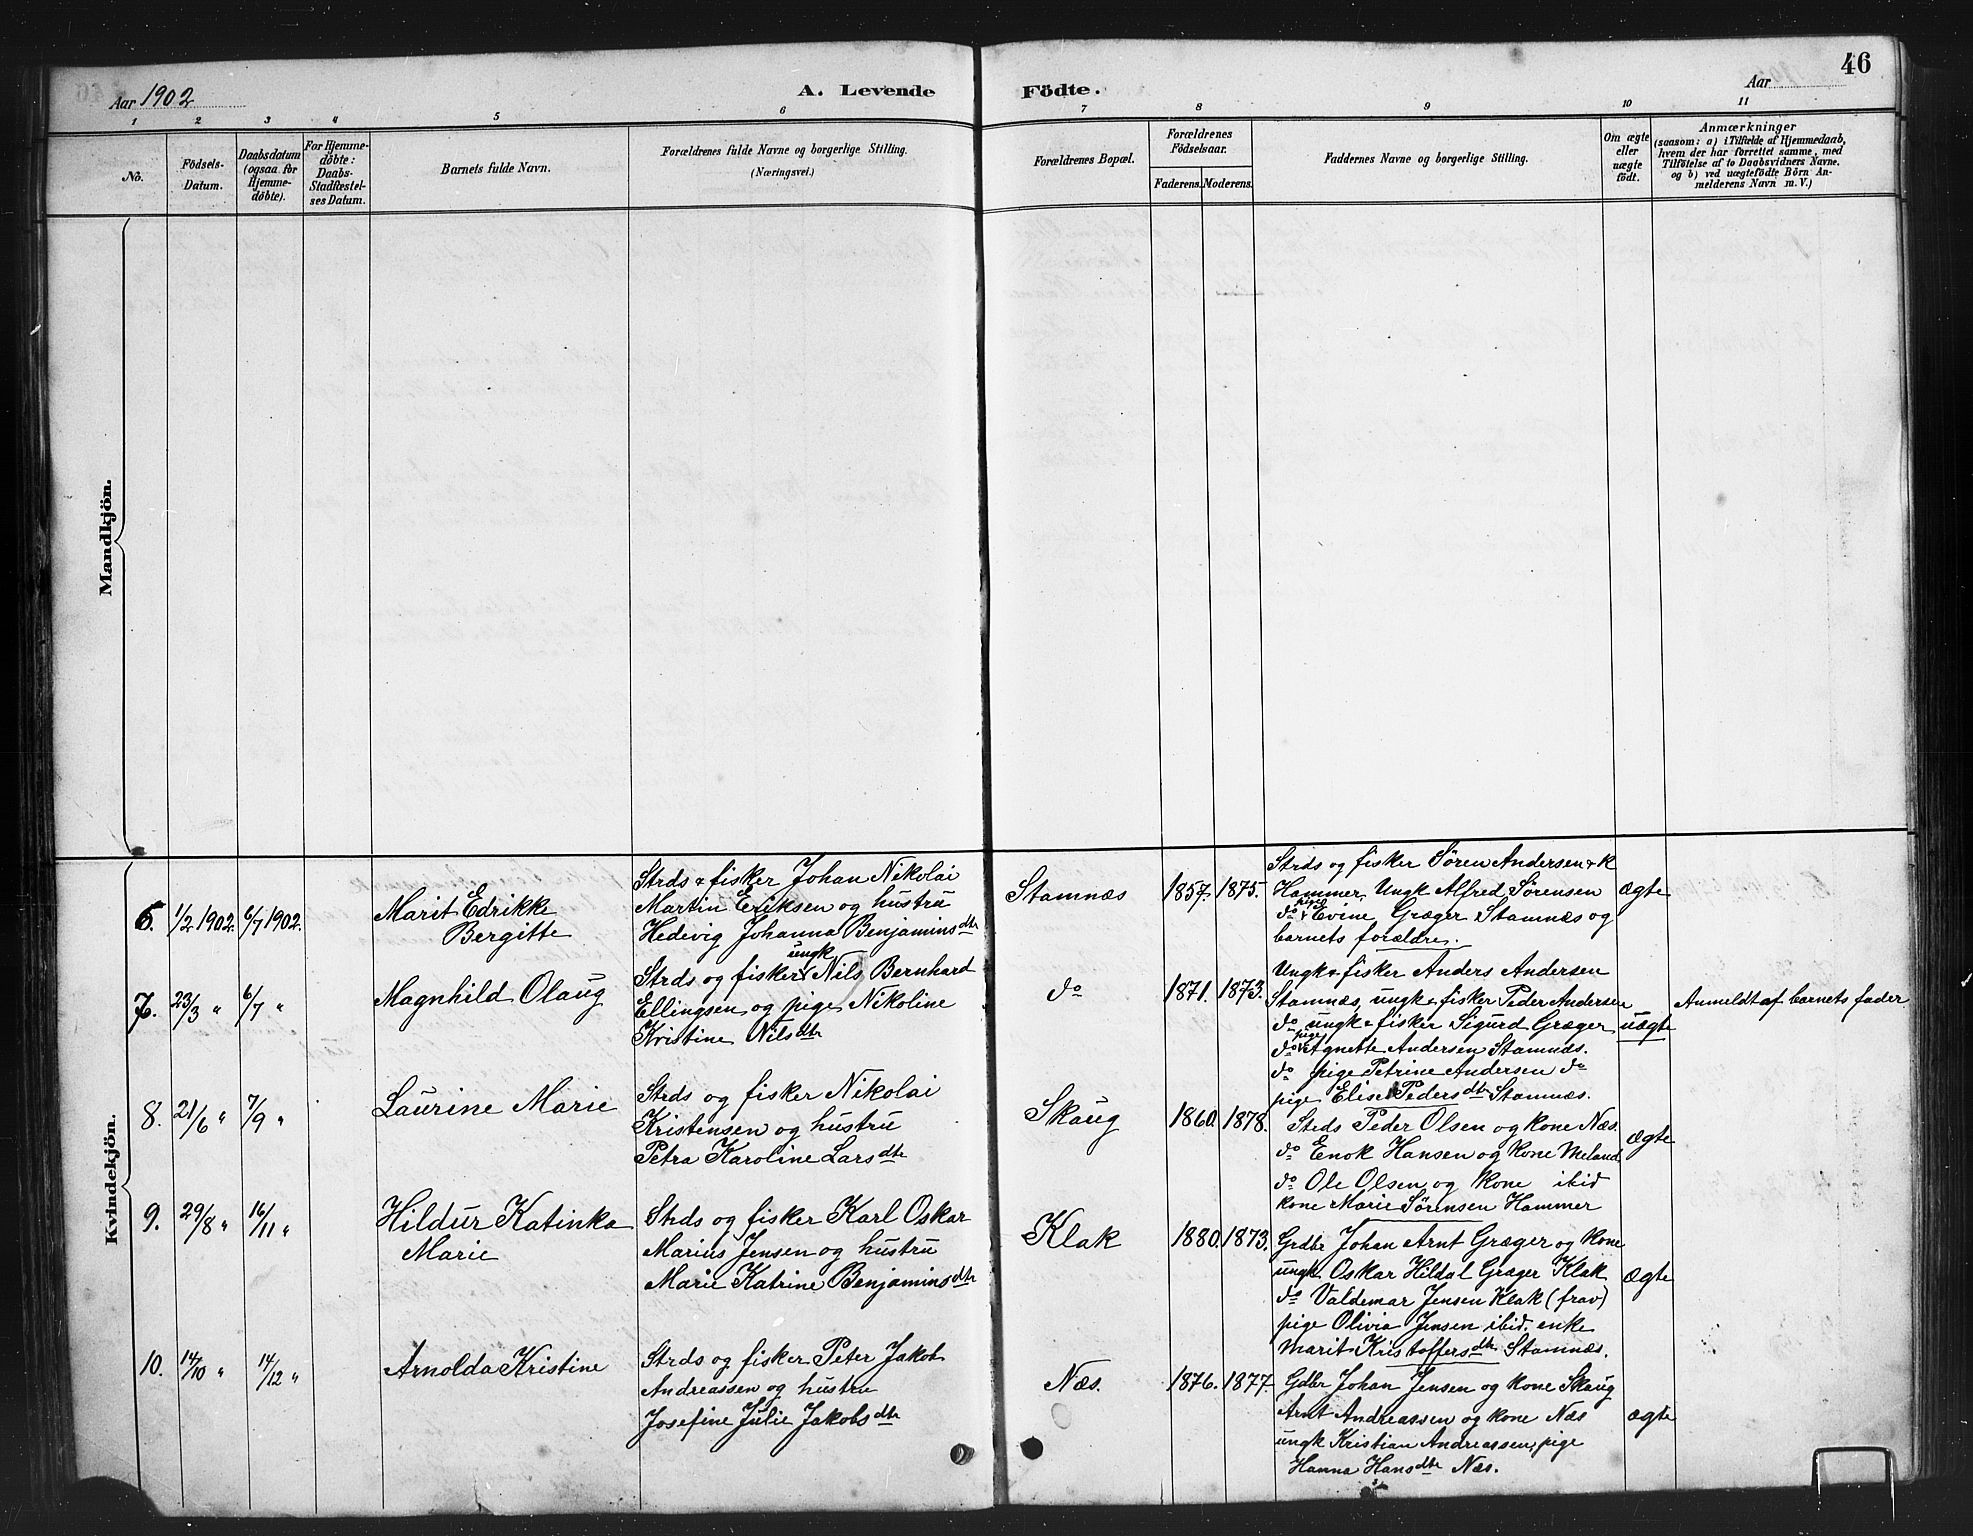 Aar 1902
A. Levende
Födte.
Aar
46
1 2 3 4 5 6 7 8 9 10 11
No.
Födsels-
Datum.
Daabsdatum
(ogsaa for
Hjemme-
döbte).
For Hjemme-
döbte:
Daabs-
Stadfæstel-
ses Datum.
Barnets fulde Navn.
Forældrenes fulde Navne og borgerlige Stilling.
(Næringsvei.)
Forældrenes Bopæl.
Forældrenes
Födselsaar.
Faderens. Moderens.
Faddernes Navne og borgerlige Stilling.
Om ægte
eller
uægte
födt.
Anmærkninger
(saasom: a) i Tilfælde af Hjemmedaab,
hvem der har forrettet samme, med
Tilföielse af to Daabsvidners Navne.
og b) ved uægtefödte Börn An-
melderens Navn m. V.)
Mandkjön.
Kvindekjön.
6. 1/2 1902. 6/7 1902.
Marit Edrikke
Bergitte
Strds & fisker Johan Nikolai
Martin Eriksen og hustru
Hedevig Johanna Benjaminsdtr
Stamnæs
1857. 1875.
Strds og fisker Søren Andersen & k
Hammer, Ungk Alfred Sørensen
do & pige Evine Græger Stamnæs og
barnets forældre.
ægte
7. 23/3 " 6/7 "
Magnhild Olaug
Strds og fisker ungk Nils Bernhard
Ellingsen og pige Nikoline
Kristine Nilsdtr
do
1871. 1873.
Ungk & fisker Anders Andersen
Stamnæs, ungk & fisker Peder Andersen
do ungk & fisker Sigurd Græger
do pige Agnette Andersen Stamnæs.
do pige Petrine Andersen do
pige Elise Pedersdtr Stamnæs.
uægte
Anmeldt af barnets fader
8. 21/6 " 7/9 "
Laurine Marie
Strds og fisker Nikolai
Kristensen og hustru
Petra Karoline Larsdtr
Skaug
1860. 1878.
Strds Peder Olsen og kone Næs.
do Enok Hansen og kone Meland
do Ole Olsen og kone ibid
kone Marie Sørensen Hammer
ægte
9. 29/8 " 16/11 "
Hildur Katinka
Marie
Strds og fisker Karl Oskar
Marius Jensen og hustru
Marie Katrine Benjaminsdtr
Klak
1880. 1873.
Grdbr Johan Arnt Græger og kone
ungk Oskar Hildal Græger Klak
do Valdemar Jensen Klak (frav)
pige Olivia Jensen ibid. enke
Marit Kristoffersdtr Stamnæs.
ægte
10. 14/10 " 14/12 "
Arnolda Kristine
Strds og fisker Peter Jakob
Andreassen og hustru
Josefine Julie Jakobsdtr
Næs.
1876. 1877.
Gdbr Johan Jensen og kone Skaug
Arnt Andreassen og kone Næs
ungk Kristian Andreassen, pige
Hanna Hansdtr Næs.
ægte